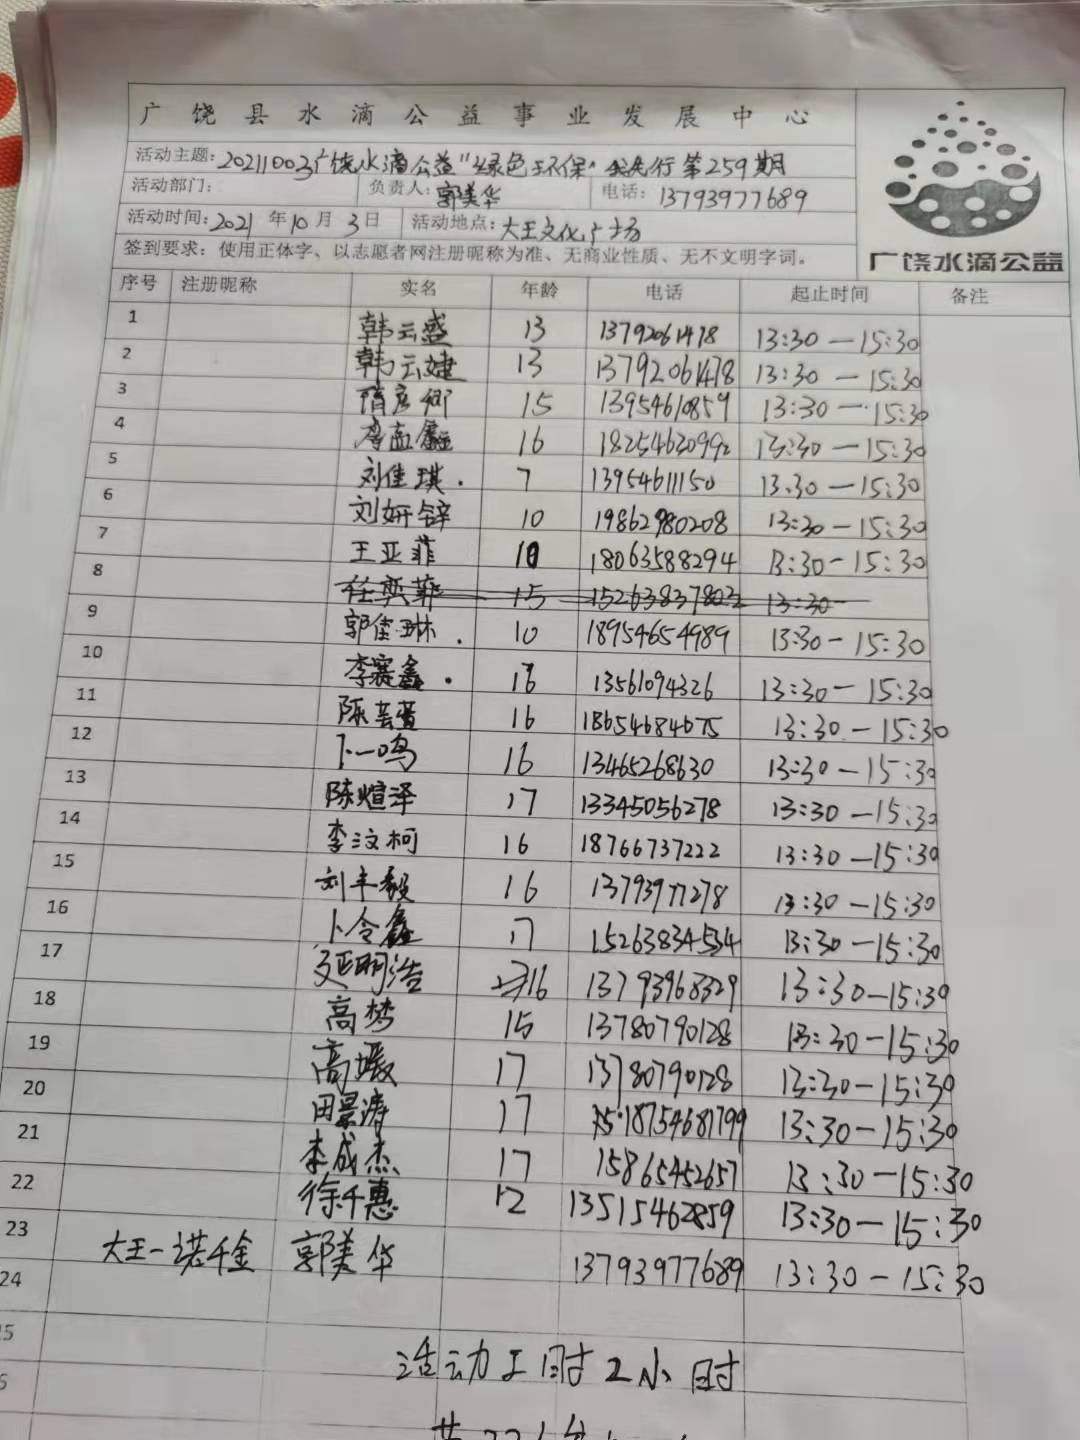 广饶县水滴公益事业发展中心
活动主题：20211003广饶水滴公益"绿色环保"我先行第259期
活动部门： 负责人：郭美华 电话：13793977689
活动时间：2021年10月3日 活动地点：大王文化广场
签到要求：使用正体字、以志愿者网注册昵称为准、无商业性质、无不文明字词。
广饶水滴公益
序号 注册昵称 实名 年龄 电话 起止时间 备注
1 韩云盛 13 13792061478 13:30—15:30
2 韩云婕 13 13792061478 13:30—15:30
3 隋彦卿 15 13954610859 13:30—15:30
4 鑫 16 18254630992 13:30—15:30
5 刘佳琪. 7 13954611150 13:30—15:30
6 刘妍锌 10 19862980208 13:30—15:30
7 王亚菲 10 18063588294 13:30-15:30
8 任奕菲 15 15263837803 13:30-
9 郭佳琳. 10 18954654989 13:30-15:30
10 李赛鑫. 16 13561094326 13:30-15:30
11 陈 16 18654684675 13:30.-15:30
12 卜一鸣 16 13465268630 13:30-15:30
13 陈煊泽 17 13345056278 13:30-15:30
14 李汶柯 16 18766737222 13:30-15:30
15 刘丰毅 16 13793977278 13:30-15:30
16 卜令鑫 17 15263834534 13:30-15:30
17 延明浩 16 13793968329 13:30-15:30
18 高梦 15 13780790128 13:30-15:30
19 高媛 17 13780790128 13:30-15:30
20 田景涛 17 18754681799 13:30-15:30
21 李成杰 17 15865452657 13:30-15:30
22 徐千惠 12 13515462859 13:30-15:30
23 大王一诺千金 郭美华 13793977689 13:30-15:30
24
活动工时2小时